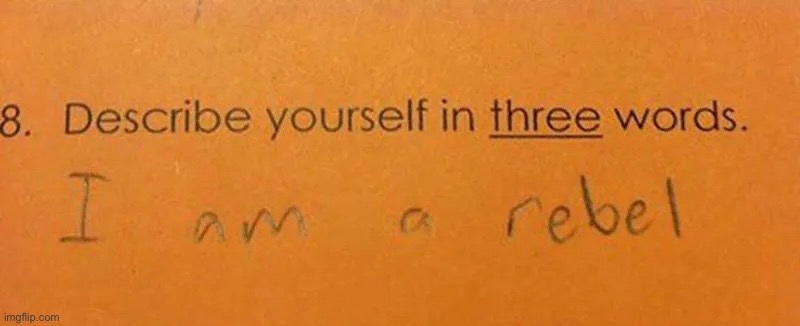 8. Describe yourself in three words.
I am a rebel
imgflip.com